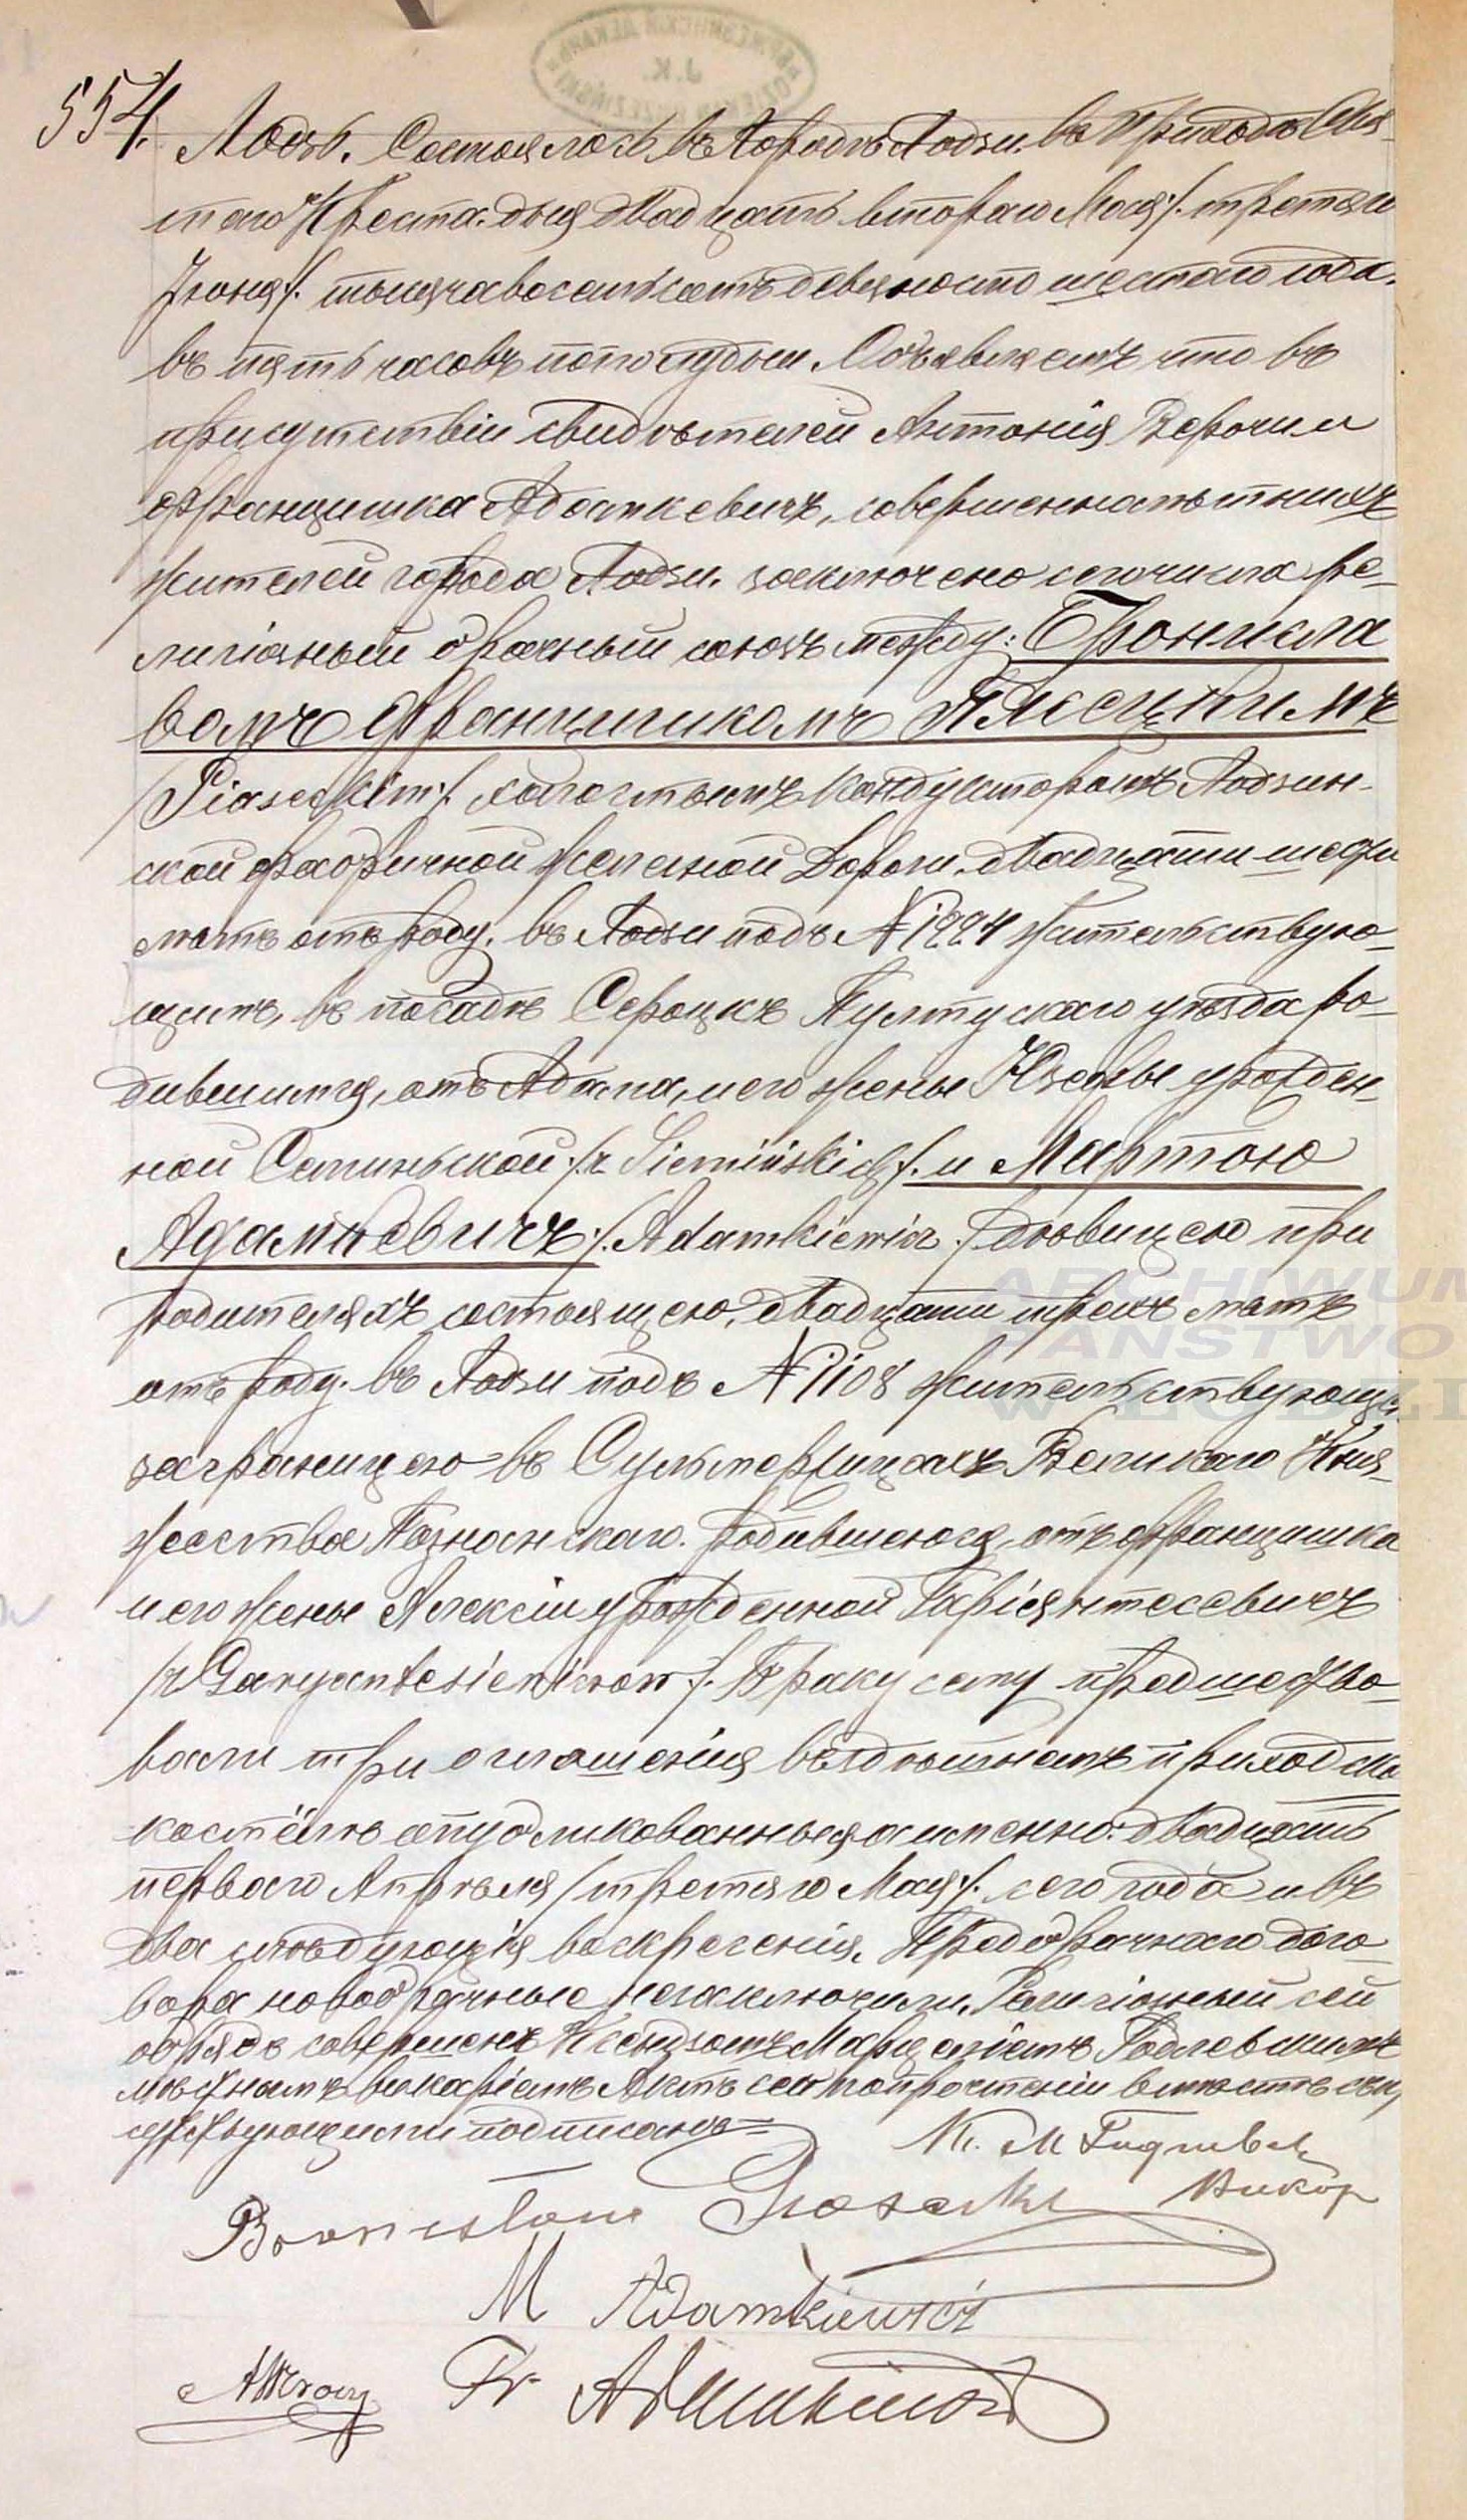 554.
Лодзь. Состоялось въ городѣ Лодзи, въ приходѣ Свя-
таго Креста, дня двадцать втораго Мая /: третьяго
Іюня /: тысяча восемьсотъ девяносто шестаго года,
въ пять часовъ пополудни. Объявляемъ что въ
присутствіи свидѣтелей Антонія и
Францишка Адамкевичъ, совершеннолѣтнихъ
жителей города Лодзи, заключено сего числа ре-
лигіозный брачный союзъ между: Бронисла
вомъ Францишкомъ Пясецкимъ
/Piaseckim/. холостымъ кондукторомъ Лодзин-
ской фабричной желѣзной дороги, двадцати шести
лѣтъ отъ роду, въ Лодзи подъ № 1224 жительствую-
щимъ, въ посадѣ Сероцкъ Пултускаго уѣзда ро-
дившимся, отъ Адама, и его жены Юзефы урожден-
ной Семиньской /: z Siemińskich /. и Мартою
Адамкевичъ /. Adamkiewicz ./ дѣвицею при
родителяхъ состоящею, двадцати трехъ лѣтъ
отъ роду, въ Лодзи подъ № 1108 жительствующею
заграницею въ Сульмержицахъ Великаго Кня-
жества Познанскаго родившеюся, отъ Францишка
и его жены Алексіи урожденной Гаріянтесевичъ
/z Garyantesiewiczow /. Браку сему предшество-
вали три оглашенія въ здѣшнемъ приходскомъ
костёлѣ опубликованныя а именно: двадцать
перваго Апрѣля /третьяго Мая /. сего года и въ
два слѣдующія воскресенія. Предбрачнаго дого-
вора новобрачные незаключили. Религіозный сей
обрядъ совершенъ Ксендзомъ Марцеліемъ Годлевскимъ
мѣстнымъ викаріемъ. Актъ сей по прочтеніи вмѣстѣ съ
подписанъ
Кс. М Годлевск
Викар
Bronisław Piasecki
M Adamkiewicz
Fr Adamkiewicz